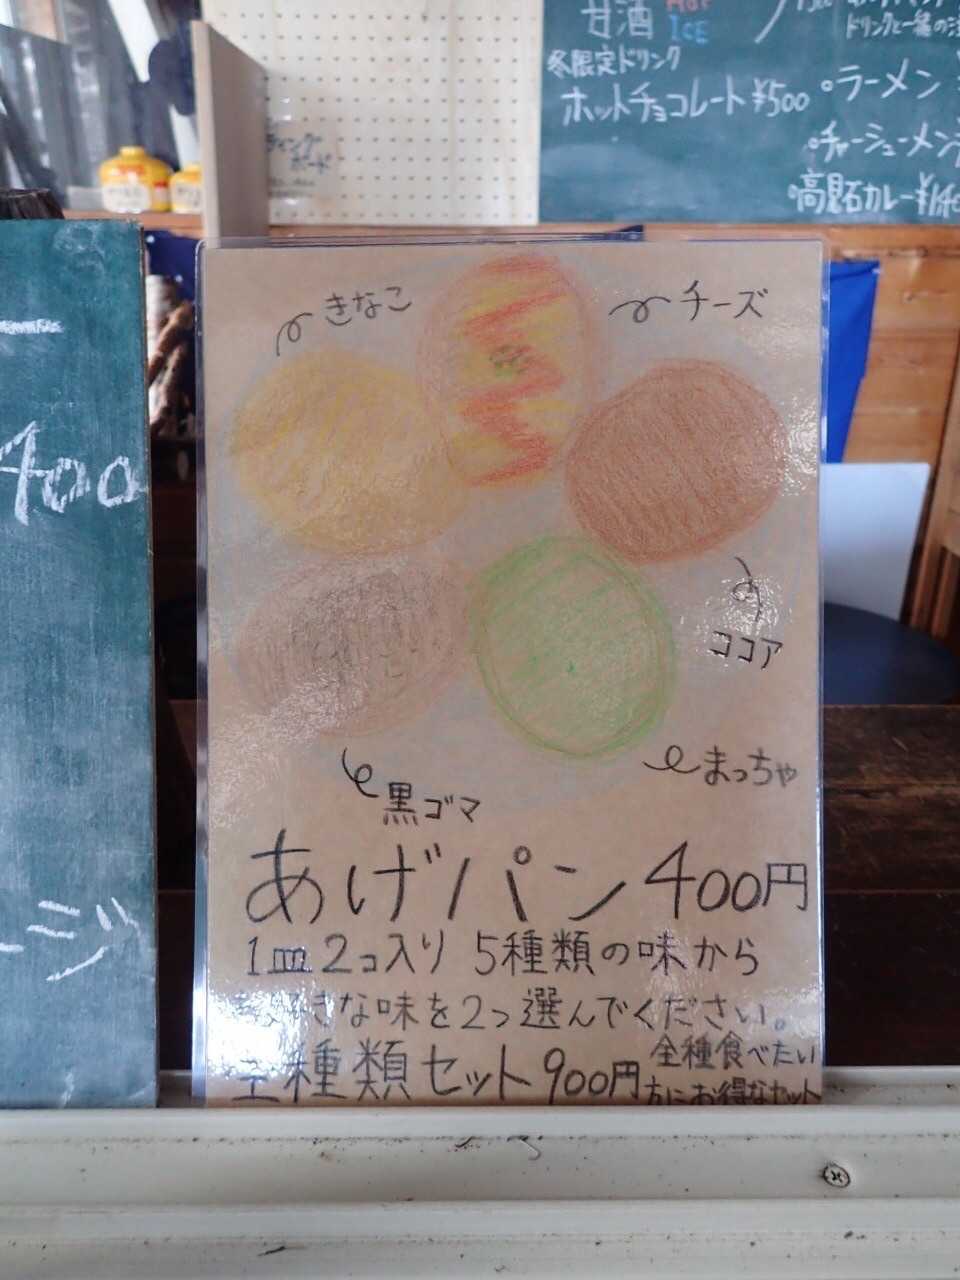 甘酒 HOT ICE
冬限定ドリンク
ホットチョコレート ¥500
ドリンクと一緒の
ラーメン
チャーシューメン
高見石カレー ¥140
400
きなこ
チーズ
ココア
まっちゃ
黒ゴマ
あげパン 400円
1皿2コ入り 5種類の味から
お好きな味を2つ選んでください。
全種類セット 900円
全種食べたい
方にお得なセット